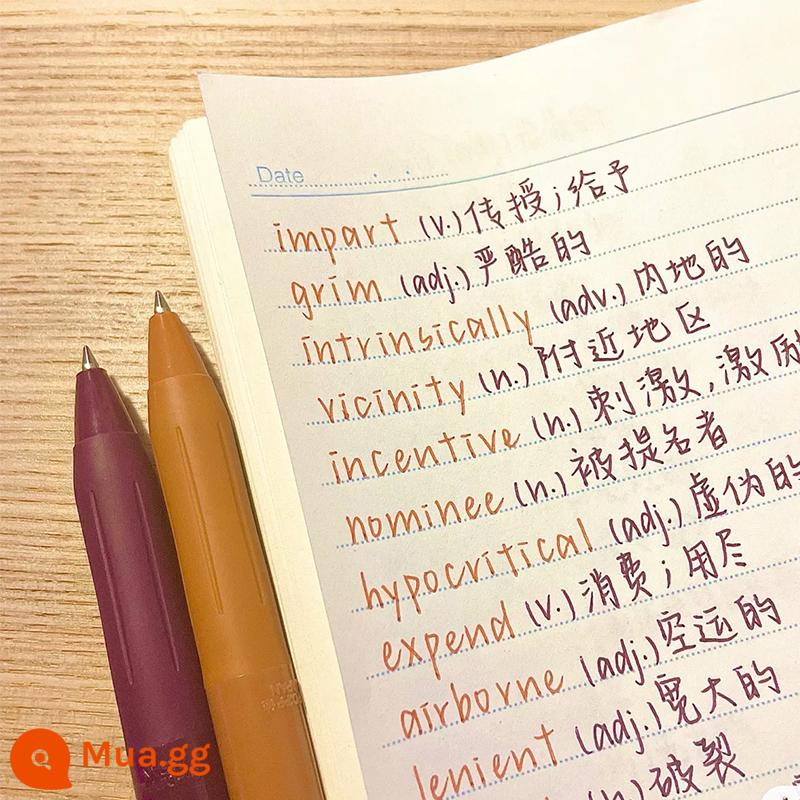 Date
impart (v.) 传授；给予
grim (adj.) 严酷的
intrinsically (adv.) 内地的
vicinity (n.) 附近地区
incentive (n.) 刺激,激励
nominee (n.) 被提名者
hypocritical (adj.) 虚伪的
expend (v.) 消费；用尽
airborne (adj.) 空运的
lenient (adj.) 宽大的
(n.) 破裂
JAPAN
Mua.gg